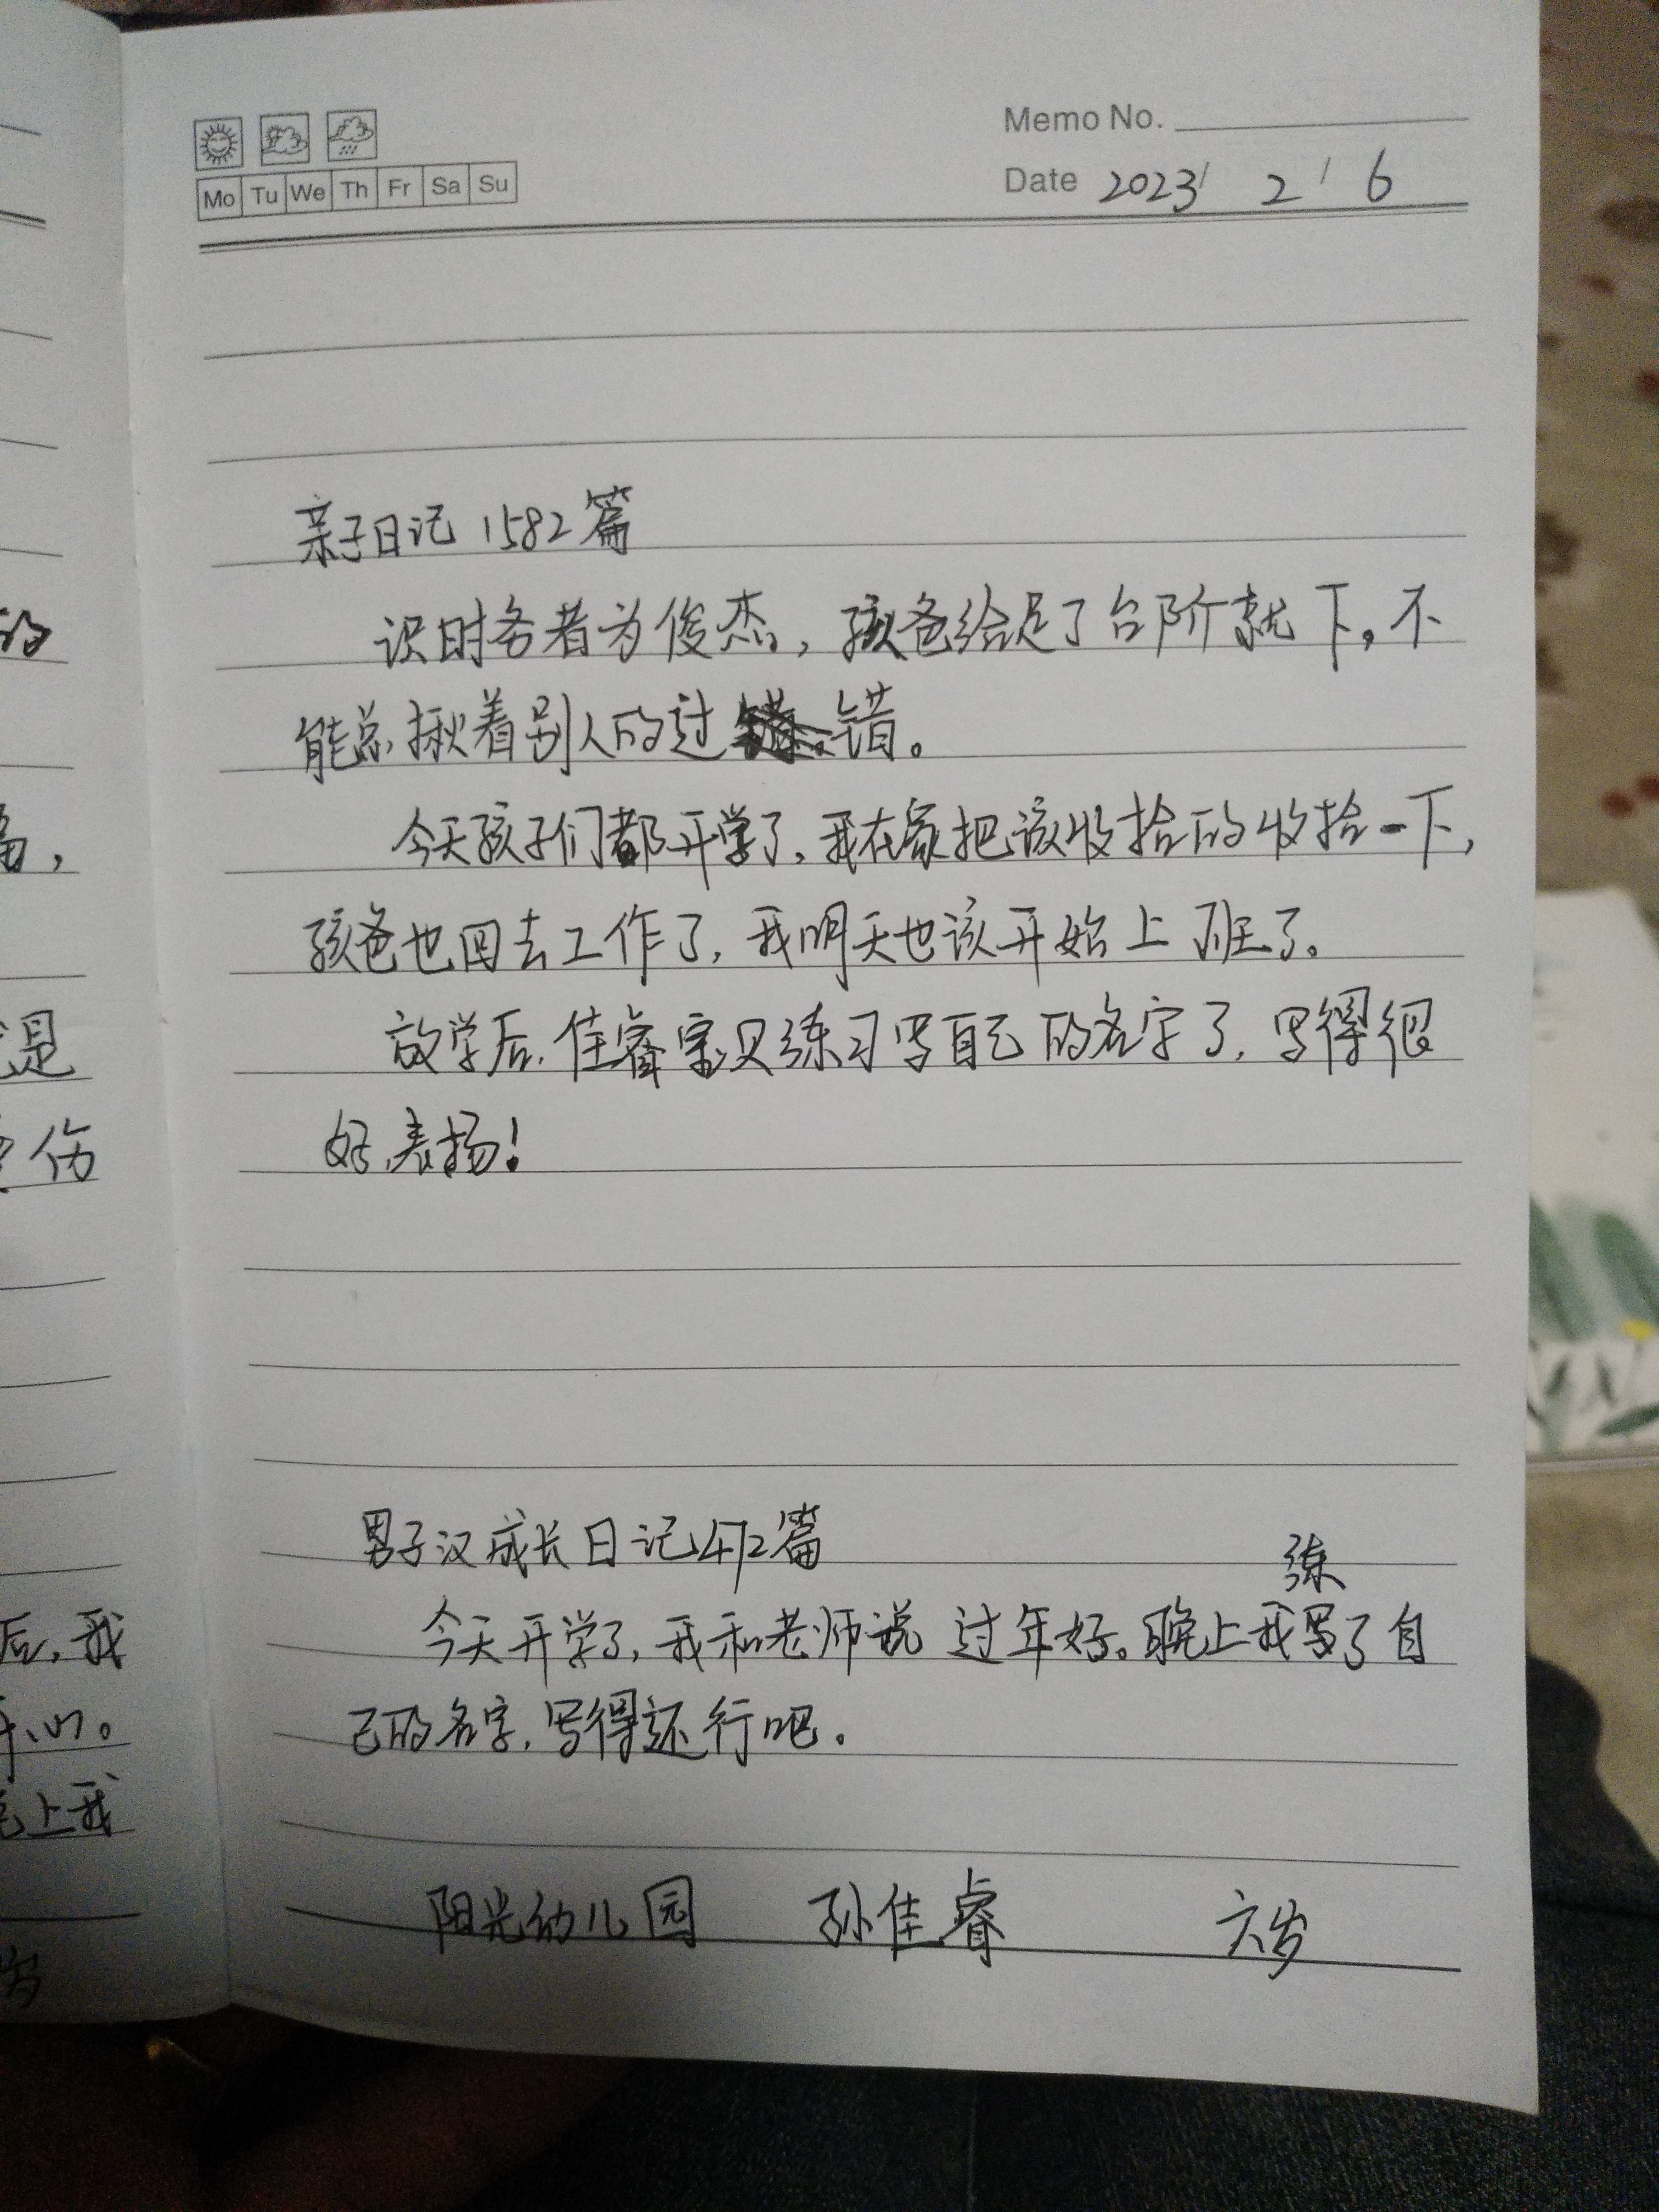 Memo No.
Mo Tu We Th Fr Sa Su
Date 2023/ 2 / 6
亲子日记 1582篇
识时务者为俊杰，孩爸给足了台阶就下。不
能总揪着别人的过错。
今天孩子们都开学了，我在家把该收拾的收拾一下，
孩爸也回去工作了，我明天也该开始上班了。
放学后，佳睿宝贝练习写自己的名字了，写得很
好，表扬！
男子汉成长日记472篇
今天开学了，我和老师说过年好。晚上我练写了自
己的名字，写得还行吧。
阳光幼儿园 孙佳睿 六岁
的
是
伤
后，我
开心。
晚上我
岁